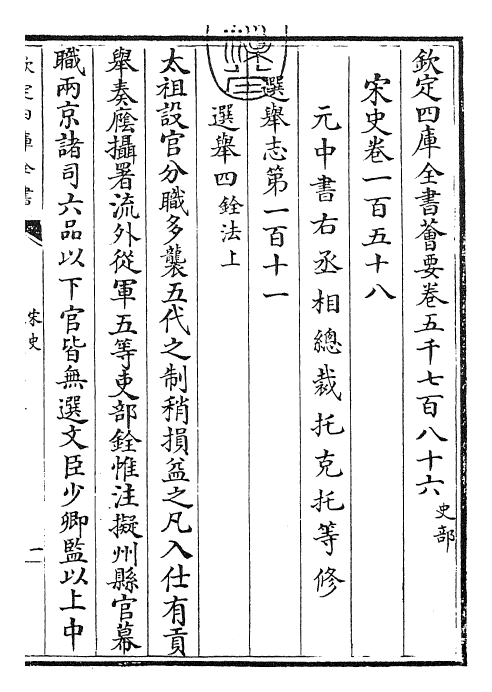 欽定四庫全書薈要卷五千七百八十六 史部
宋史卷一百五十八
元中書右丞相總裁托克托等修
選舉志第一百十一
選舉四 銓法上
太祖設官分職多襲五代之制稍損益之凡入仕有貢
舉奏廕攝署流外從軍五等吏部銓惟注擬州縣官幕
職兩京諸司六品以下官皆無選文臣少卿監以上中
欽定四庫全書
宋史
一